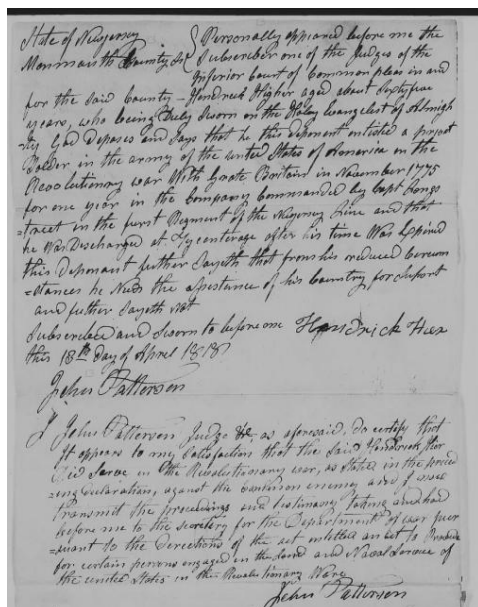 State of Newjersey
Monmouth County Ss } Personally appeared before me the
Subscriber one of the Judges of the
Inferior Court of Common pleas in and
for the said County – Hendrick Higher aged about Sixtyfive
years, who being Duly Sworn on the Holey Evangelest of Almigh
-ty God Deposes and Says that he this deponent inlisted a privet
Solder in the army of the united States of America in the
Revolutionary war With Grate Britain in November 1775
for one year in the Company Commanded by Capt Longs
=treet in the furst Regiment of the Nujersey Line and that
he Was Descharged at after his time Was Expired
this Deponant further Sayeth that from his reduced Sercum
=stances he Nieds the asistance of his Country for Suport
and futher Sayeth not
Subscribed and Sworn to before me Hendrick
this 18th Day of April 1818
John Patterson
I John Patterson Judge &c, as aforesaid, do certify that
it appears to my Satisfaction that the said Hendrick
Did Serve in the Revolutionary war, as stated in the preced
=ing declaration, against the common enemy and I now
transmit the proceedings and testimony taking and had
before me to the secretary for the Department of war pur
=suant to the directions of the act intitled an act to Provide
for certain persons engaged in the Land and Naval Service of
the united States in the Revolutionary Ware
John Patterson